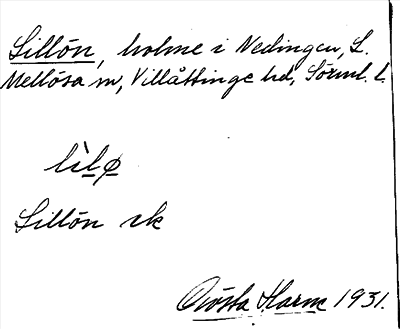 Lillön, holme i Nedingen, L.
Mellösa sn, Villåttinge hd, Sörml. l.
lìlø
Lillön ek
Gösta Harme 1931.